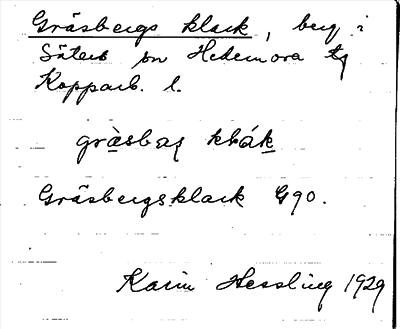 Gräsbergs klack, berg i
Säters sn Hedemora tg
Kopparb. l.
gräsbag klák
Gräsbergsklack G90.
Karin Hessling 1929